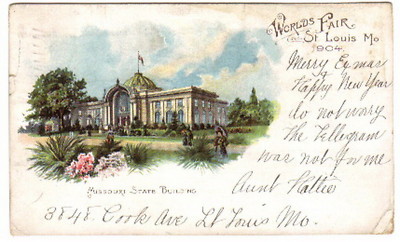 WORLDS FAIR
ST LOUIS MO
1904.
Merry Exmas
Happy New Year
do not worry
The Tellegram
was not for me
Aunt Hattie
MISSOURI STATE BUILDING
3848 Cook Ave St Louis Mo.